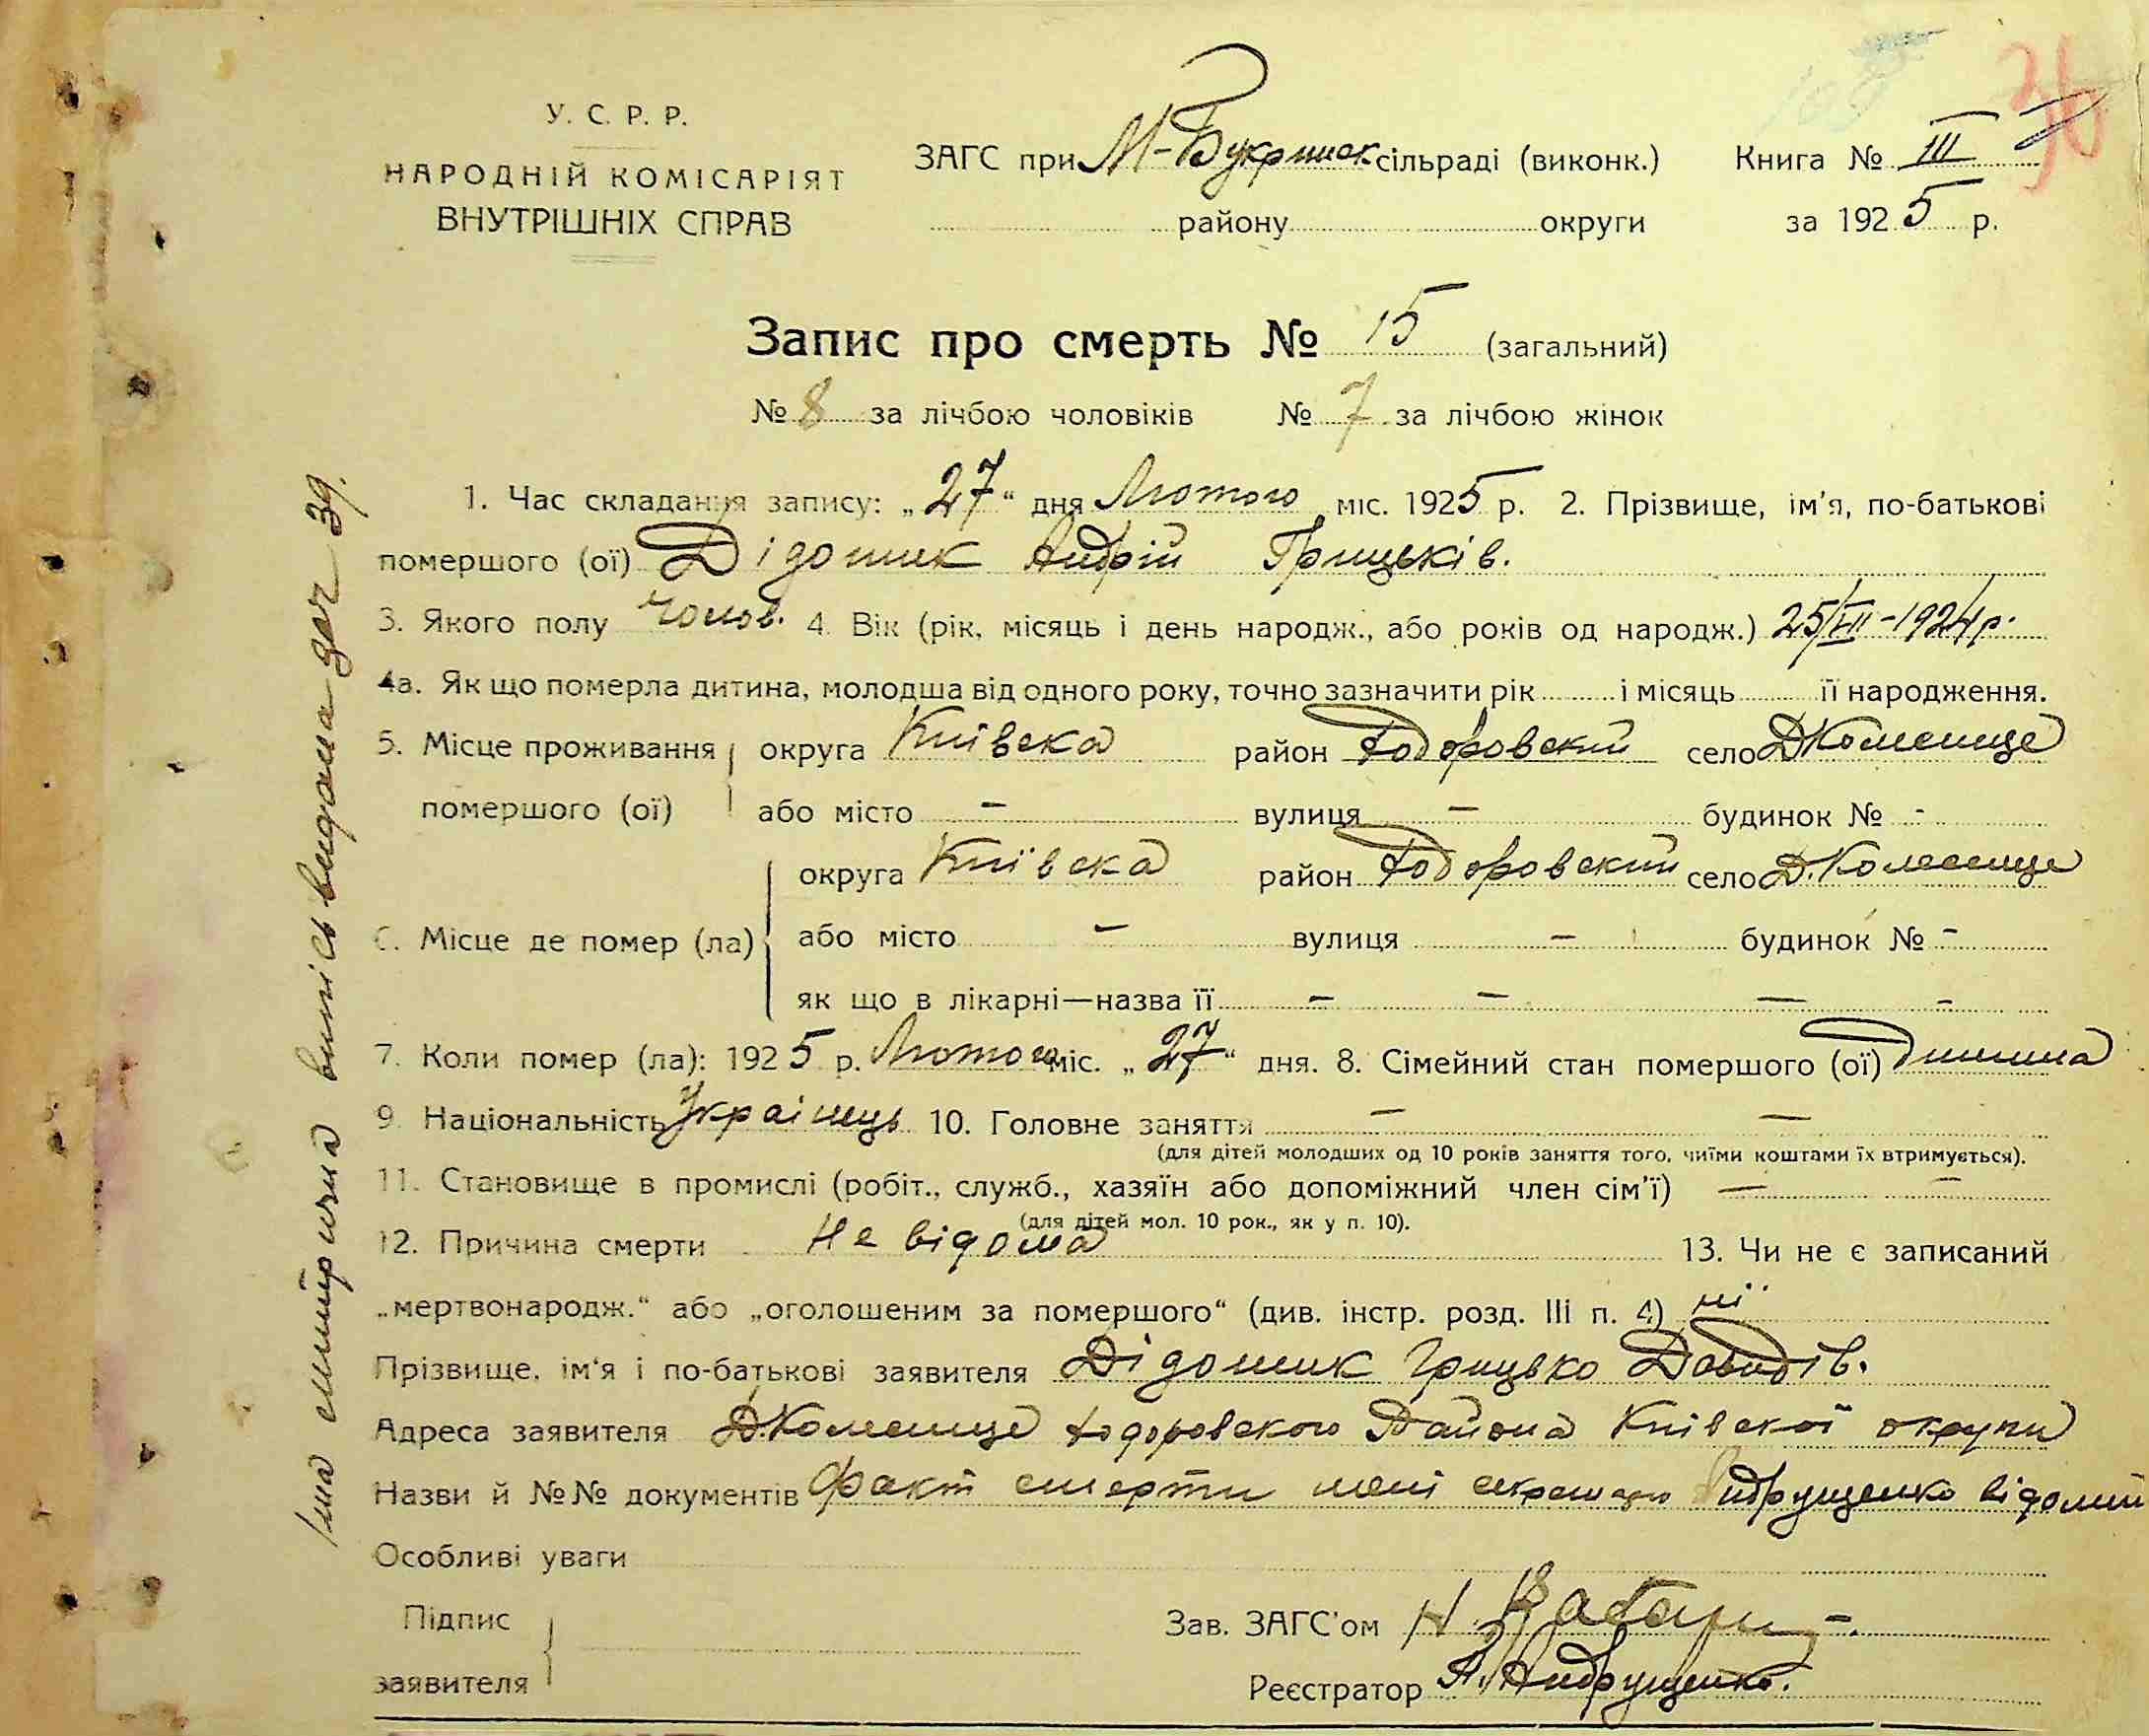 У. С. Р. Р.
НАРОДНІЙ КОМІСАРІЯТ
ВНУТРІШНІХ СПРАВ
ЗАГС при М-Букринск сільраді (виконк.)
району округи
Книга № III
за 1925 р.
36
Запис про смерть № 15 (загальний)
№ 8 за лічбою чоловіків № 7 за лічбою жінок
1. Час складання запису: „27“ дня Лютого міс. 1925 р. 2. Прізвище, ім'я, по-батькові
помершого (ої) Дідошик Андрій Грицьків.
3. Якого полу чолов. 4. Вік (рік, місяць і день народж., або років од народж.) 25/VII-1924 р.
4а. Як що померла дитина, молодша від одного року, точно зазначити рік і місяць її народження.
5. Місце проживання округа Київска район Ходоровский село Д Колесище
помершого (ої) або місто - вулиця - будинок № -
округа Київска район Ходоровский село Д. Колесище
6. Місце де помер (ла) або місто - вулиця - будинок № -
як що в лікарні—назва її - - - -
7. Коли помер (ла): 1925 р. Лютого міс. „27“ дня. 8. Сімейний стан помершого (ої) Дитина
9. Національність Українець 10. Головне заняття - -
(для дітей молодших од 10 років заняття того, чиїми коштами їх втримується).
11. Становище в промислі (робіт., служб., хазяїн або допоміжний член сім'ї) - -
(для дітей мол. 10 рок., як у п. 10).
12. Причина смерти Не відома 13. Чи не є записаний
„мертвонародж.“ або „оголошеним за помершого“ (див. інстр. розд. III п. 4) ні
Прізвище, ім'я і по-батькові заявителя Дідошик Грицько Давидів.
Адреса заявителя Д. Колесище Ходоровского Района Київскої округи
Назви й №№ документів Факт смерти мені секретарю Андрущенко відомий
Особливі уваги
Підпис
заявителя
Зав. ЗАГС'ом Н.
Реєстратор А. Андрущенко.
випісь видана